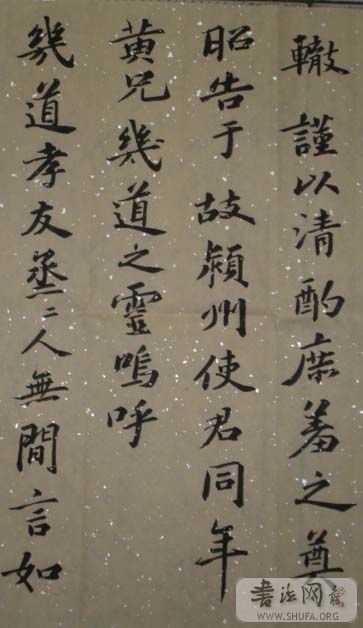 轍謹以清酌庶羞之奠
昭告于故潁州使君同年
黃兄幾道之靈嗚呼
幾道孝友烝二人無間言如
書法网
WWW.SHUFA.ORG